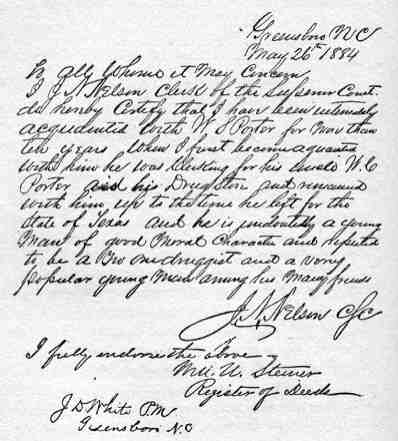 Greensboro N C
May 26th 1884
To All Whome it May Concern
I J N Nelson Clerk of the Superior Court
do hereby Certify that I have been intimately
acquainted with W S Porter for More than
ten years When I first became aquainted
with him he was Clerking for his Uncle W. C
Porter his Drug Store and remained
with him up to the time he left for the
State of Texas and he is undoubtedly a young
Man of good Moral Character and reputed
to be a No one druggist and a very
popular young Man among his Many friends
J. N. Nelson CSC
I fully endorse the above
U. Steiner
Register of Deeds
J D White P.M
Greensboro N.C